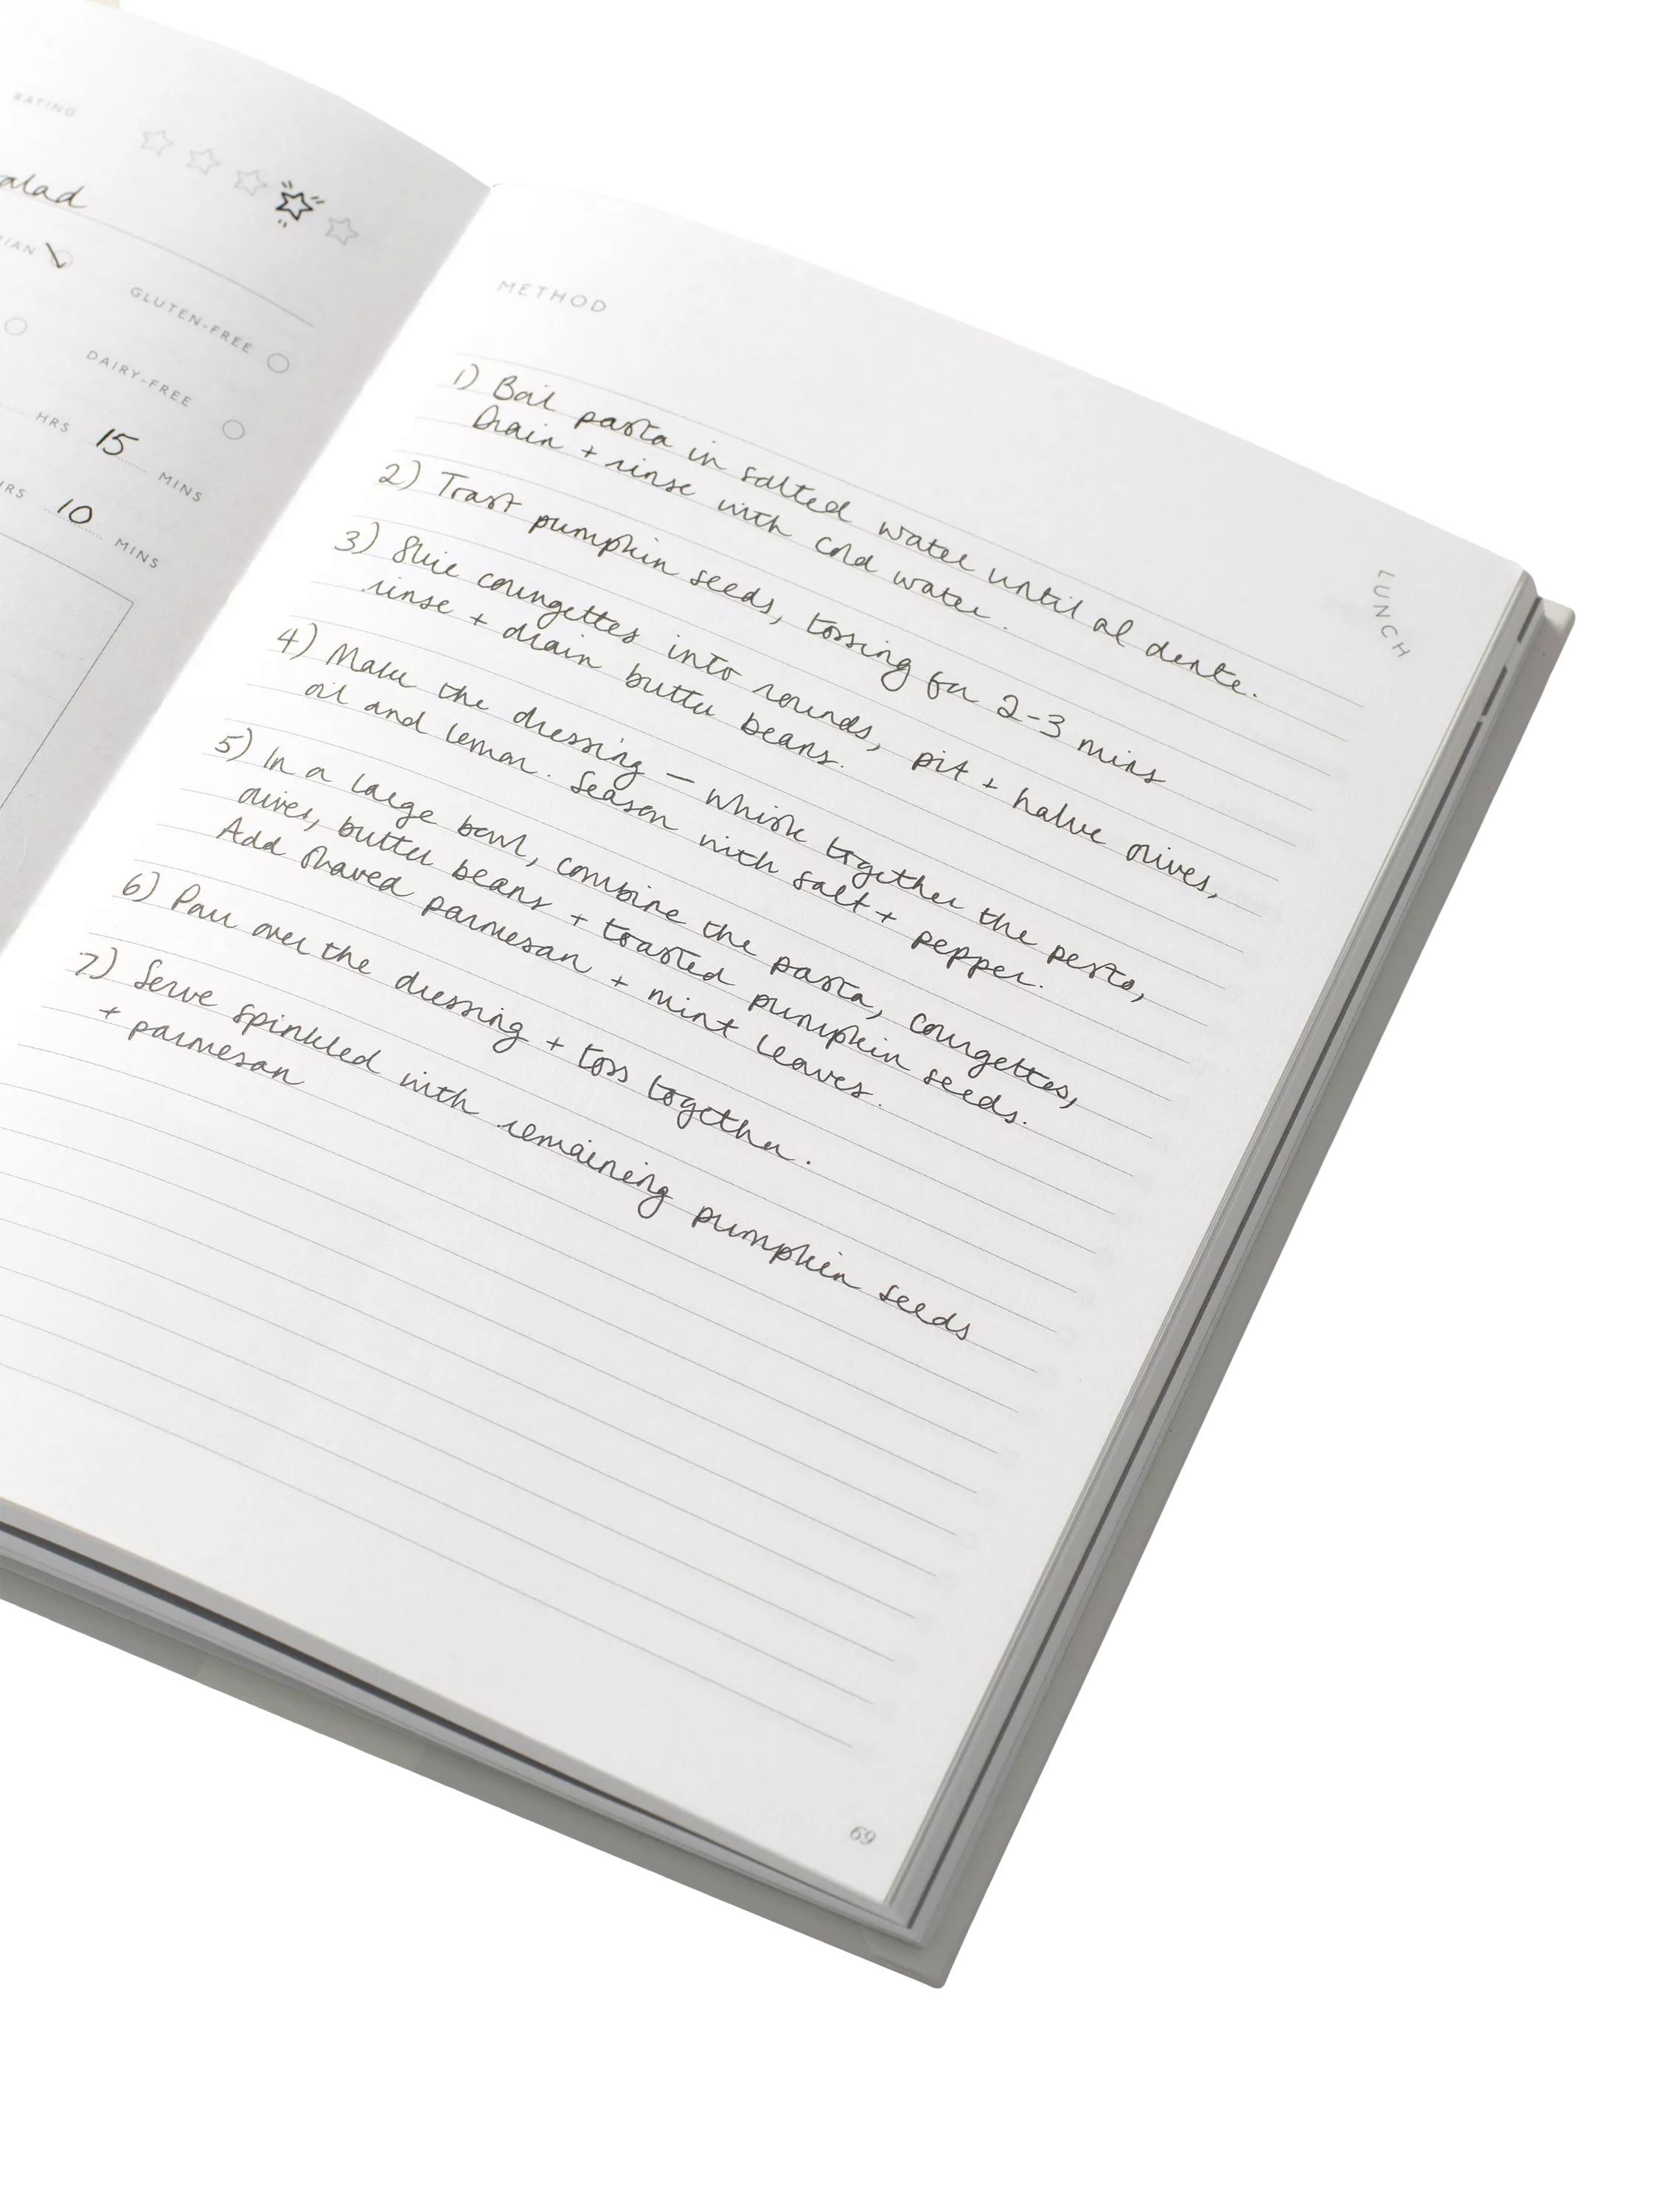 RATING
alad
IAN
GLUTEN-FREE
DAIRY-FREE
HRS 15 MINS
RS 10 MINS
METHOD
1) Boil pasta in salted water until al dente.
Drain + rinse with cold water.
2) Toast pumpkin seeds, tossing for 2-3 mins
3) Slice courgettes into rounds, pit + halve olives,
rinse + drain butter beans.
4) Make the dressing - whisk together the pesto,
oil and lemon. Season with salt + pepper.
5) In a large bowl, combine the pasta, courgettes,
olives, butter beans + toasted pumpkin seeds.
Add shaved parmesan + mint leaves.
6) Pour over the dressing + toss together.
7) Serve spinkled with remaining pumpkin seeds
+ parmesan
LUNCH
69